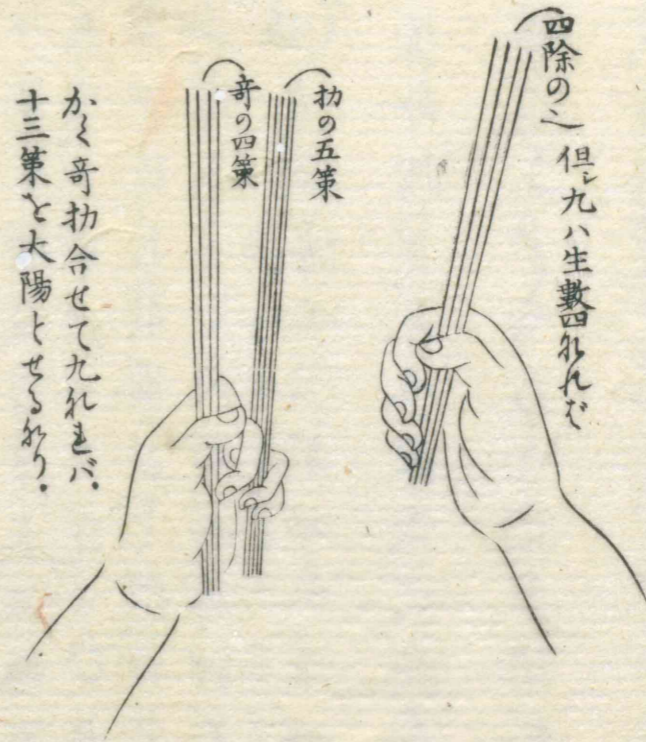 四除の之 但シ九ハ生數四なれば
扐の五策
奇の四策
かく奇扐合せて九なれバ。
十三策を太陽とせるなり。